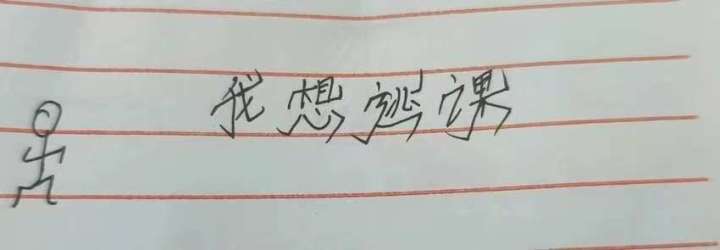 我想逃课